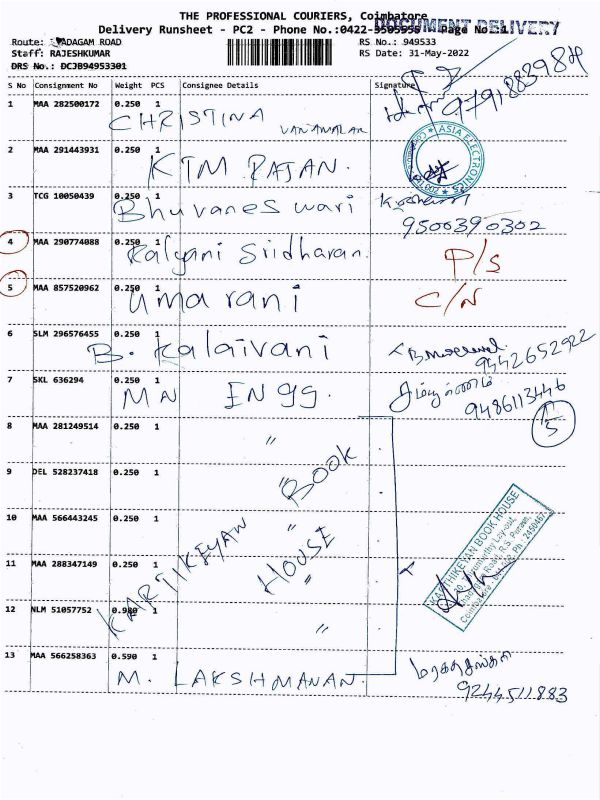 THE PROFESSIONAL COURIERS, Coimbatore
Delivery Runsheet - PC2 - Phone No.:0422- Page No.:1
DOCUMENT DELIVERY
Route: ADAGAM ROAD
RS No.: 949533
Staff: RAJESHKUMAR
RS Date: 31-May-2022
DRS No.: DCJB94953301
S No Consignment No Weight PCS Consignee Details Signature
1 MAA 282500172 0.250 1 CHRISTINA VANAMALAR
2 MAA 291443931 0.250 1 KTM RAJAN.
ASIA ELECTRONICS
3 TCG 10050439 0.250 1 Bhuvaneswari
9500390302
4 MAA 290774088 0.250 1 Kalyani Sridharan. P/S
5 MAA 857520962 0.250 1 Uma rani C/N
6 SLM 296576455 0.250 1 B. Kalaivani
9442652922
7 SKL 636294 0.250 1 MN ENGG.
9486113446
5
8 MAA 281249514 0.250 1 "
9 DEL 528237418 0.250 1 "
10 MAA 566443245 0.250 1 "
11 MAA 288347149 0.250 1 "
12 NLM 51057752 0.980 1 "
KARTIKEYAN BOOK HOUSE
KARTHIKEYAN BOOK HOUSE
13 MAA 566258363 0.590 1 M. LAKSHMANAN.
9244511883